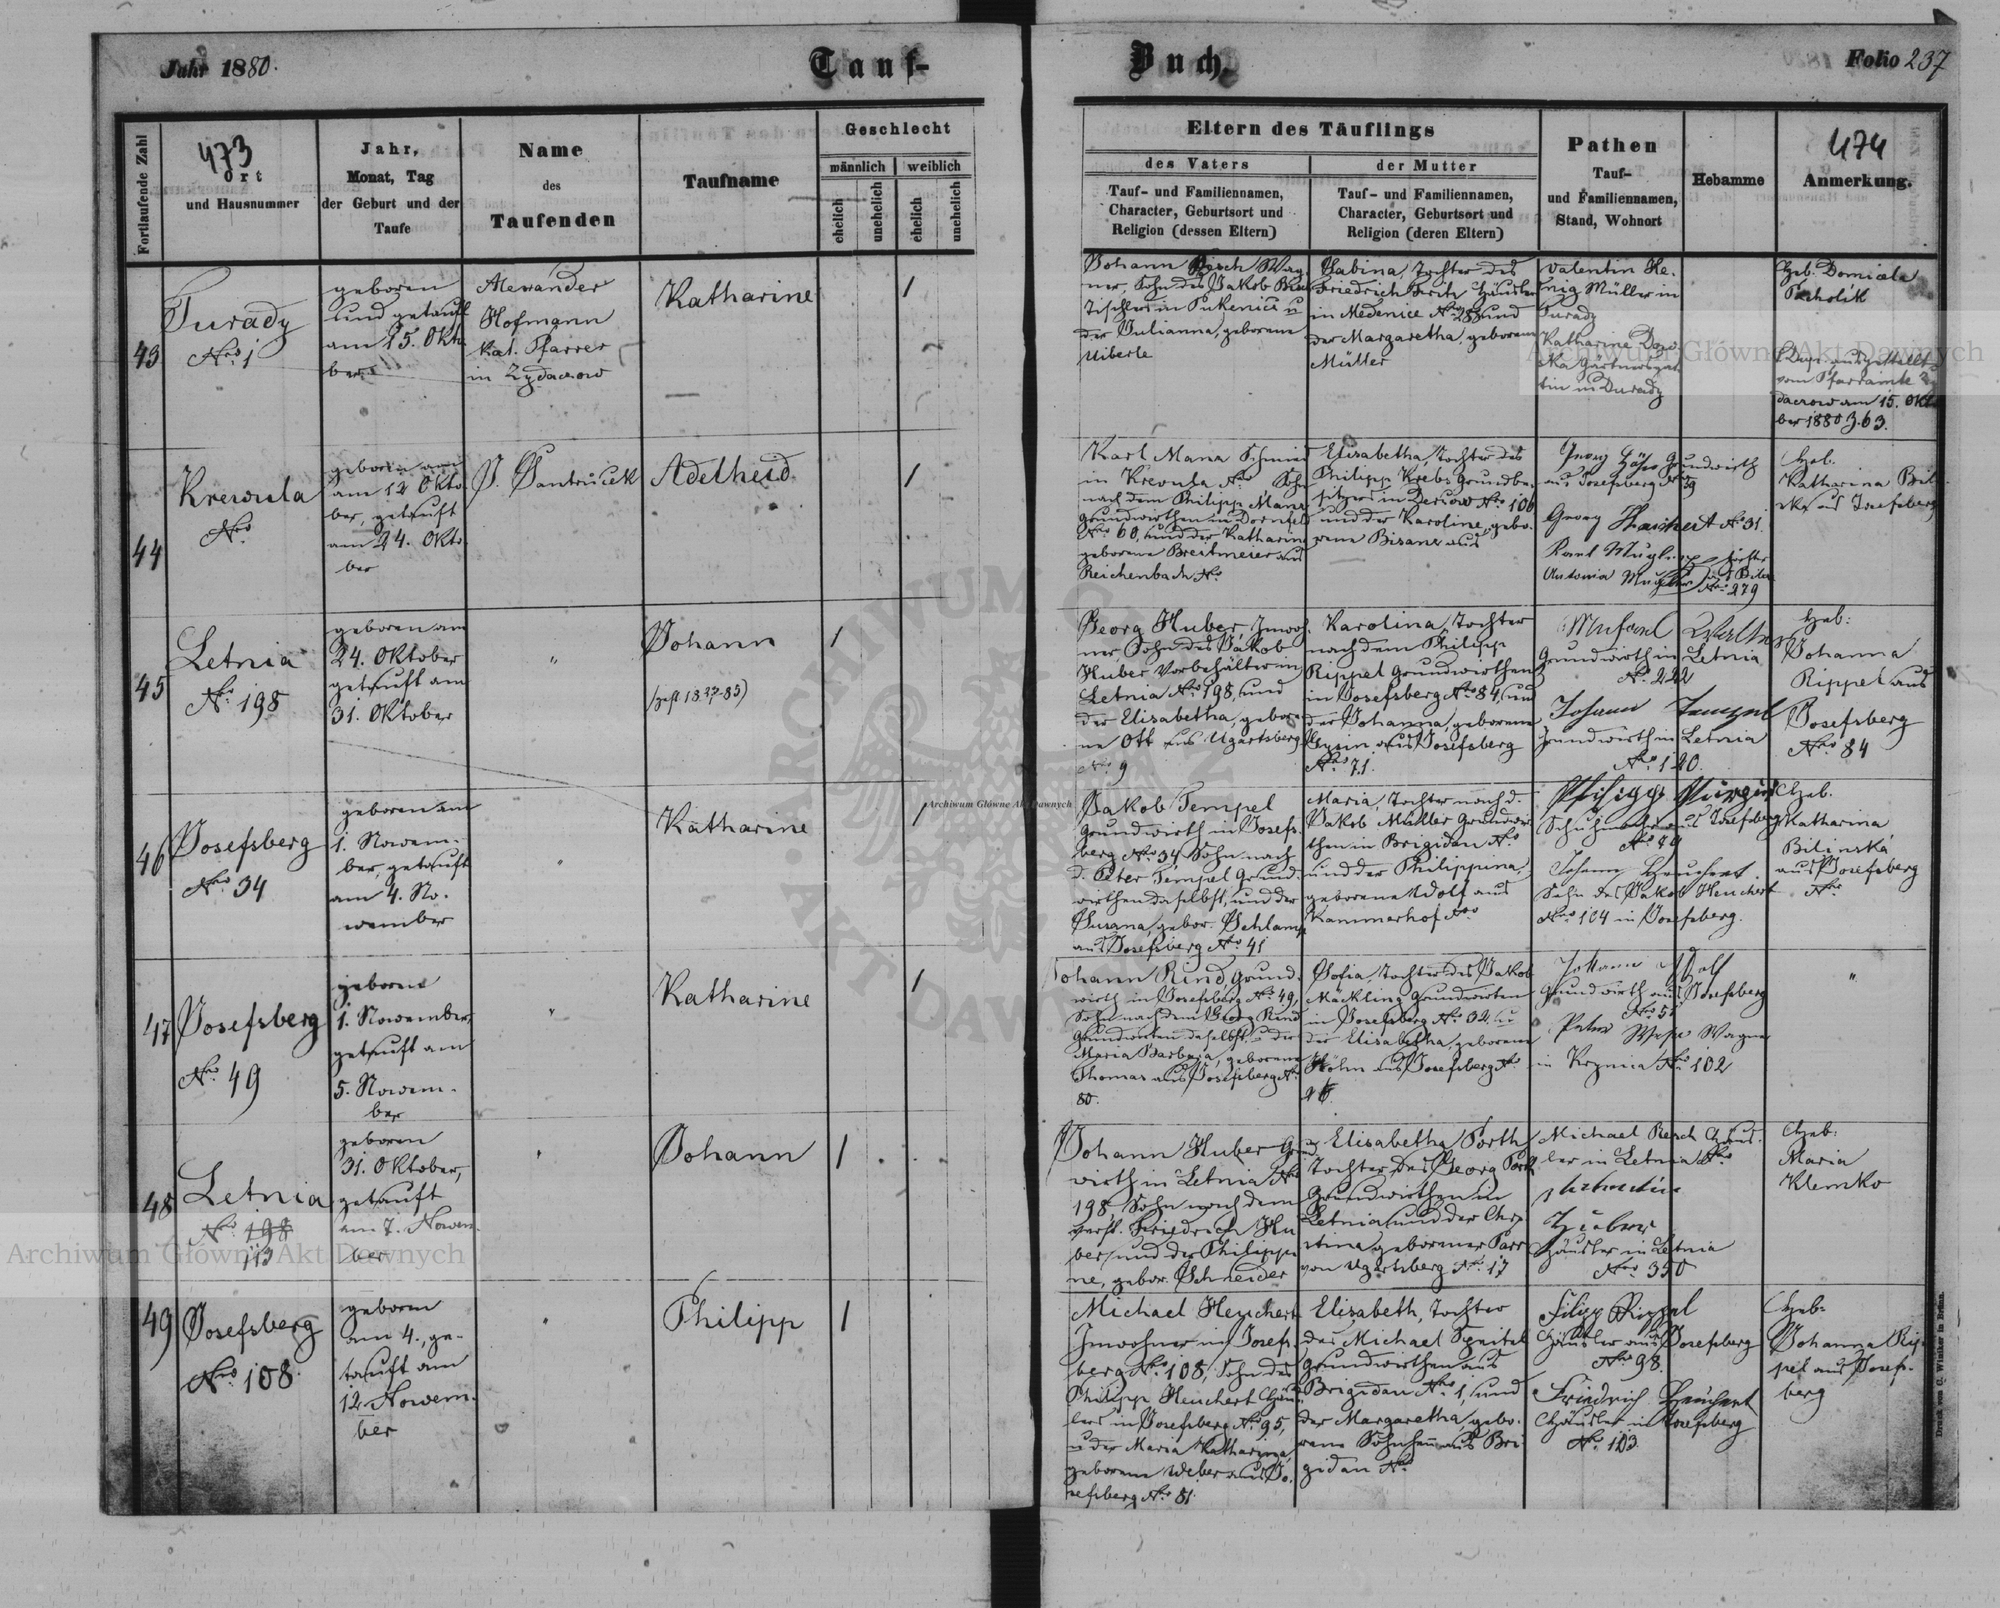 Jahr 1880.
Tauf-
Buch.
Folio 237
Fortlaufende Zahl
473
Ort
und Hausnummer
Jahr,
Monat, Tag
der Geburt und der
Taufe
Name
des
Taufenden
Taufname
Geschlecht
männlich
weiblich
ehelich
unehelich
ehelich
unehelich
Eltern des Täuflings
des Vaters
Tauf- und Familiennamen,
Character, Geburtsort und
Religion (dessen Eltern)
der Mutter
Tauf- und Familiennamen,
Character, Geburtsort und
Religion (deren Eltern)
Pathen
Tauf-
und Familiennamen,
Stand, Wohnort
Hebamme
474
Anmerkung.
43
Turady
Nro 1
geboren
und getauft
am 15. Okto
ber
Alexander
Hofmann
kat. Pfarrer
in Zydaczow
Katharine
1
Johann Wag-
ner, Sohn des Jakob
Tischler in Pukenics u
der Julianna, geborene
Uiberle
Sabina, Tochter des
Friedrich Fritz Häusler
in Medenice Nro 288 und
der Margaretha, geborene
Müller
Valentin He-
nig Müller in
Turady
Katharine
Gärtnersgat-
tin in Turady
Heb. Domicela
vom Pfarramte Zy
daczow am 15. Okto
ber 1880 Z. 63.
44
Krewula
Nro
geboren am
am 12 Okto
ber, getauft
am 24. Okto
ber
J.
Adelheid
1
Karl Manz Schmied
in Krewula Nro Sohn
nach dem Philipp Manz
Grundwirthen in Dornfeld
Nro 60, und der Katharina
geborene Breitmeier aus
Reichenbach Nro
Elisabetha, Tochter des
Philipp Krebs Grundbe-
sitzers in Nro 106
und der Karoline, gebo-
rene Bisanz aus
Georg Grundwirth
aus Josefsberg Nro 39
Georg No 31
Antonia
Nro 279
Heb.
Katharina Bil-
aus Josefsberg
45
Letnia
Nro 198
geboren am
24. Oktober
getauft am
31. Oktober
"
Johann
1
Georg Huber, Inwoh-
ner, Sohn des Jakob
Huber Vorbehälter in
Letnia Nro 198, und
der Elisabetha, gebore-
ne Ott aus Ugartsberg
Nro 9
Karolina, Tochter
nach dem Philipp
Rippel Grundwirthen
in Josefsberg Nro 84, und
der Johanna, geborene
aus Josefsberg
Nro 71.
Grundwirth in Letnia
No 222
Johann Tempel
Grundwirth in Letnia
Nro 120.
Heb:
Johanna
Rippel aus
Josefsberg
Nro 84
46
Josefsberg
Nro 34
geboren am
1. Novem-
ber, getauft
am 4. No-
vember
"
Katharine
1
Jakob Tempel
Grundwirth in Josefs-
berg Nro 34, Sohn nach
d. Peter Tempel Grund-
wirthen daselbst, und der
Susana, gebor. Schlamp
aus Josefsberg Nro 41
Maria, Tochter nach d.
Jakob Müller Grundwir-
then in Brigidau Nro
und der Philippina,
geborene Wolf aus
Kammerhof Nro
aus Josefsberg
Johann Heuchert
Sohn des Jakob Heuchert
Nro 104 in Josefsberg.
Heb.
Katharina
Bilinska
aus Josefsberg
Nro
47
Josefsberg
Nro 49
geboren
1. November,
getauft am
5. Novem-
ber
"
Katharine
1
Johann Rind, Grund-
wirth in Josefsberg Nro 49,
Sohn nach dem Georg Rind
Grundwirthen daselbst u der
Maria Barbara, geborene
Thomas aus Josefsberg Nro
80.
Sofia, Tochter des Jakob
Mäckling Grundwirten
in Josefsberg Nro 32, u
der Elisabetha, geborene
Höhn aus Josefsberg Nro
26.
Johann Wolf
Grundwirth aus Josefsberg
Nro 51
Peter Wagner
in Nro 102
"
48
Letnia
Nro 198
113
geboren
31. Oktober,
getauft
am 7. Novem-
ber
"
Johann
1
Johann Huber Grund-
wirth in Letnia Nro
198 Sohn nach dem
verst. Friedrich Hu
ber, und der Philippi
ne, gebor. Schneider
Elisabetha Porth
Tochter des Georg Porth
Grundwirthen in
Letnia und der Chri-
stina geborener Parr
von Ugartsberg Nro 17
Michael Resch Häus-
ler in Letnia Nro
Huber
Häusler in Letnia
Nro 350
Heb:
Maria
Klemko
49
Josefsberg
Nro 108.
geboren
am 4., ge-
tauft am
12 Novem-
ber
"
Philipp
1
Michael Heuchert
Inwohner in Josefs-
berg Nro 108, Sohn des
Philipp Heuchert Häus-
lers in Josefsberg Nro 95,
u der Maria Katharina,
geborene Weber aus Jo-
sefsberg Nro 81.
Elisabeth, Tochter
des Michael Speitel
Grundwirthen aus
Brigidau Nro 1, und
der Margaretha, gebo-
rene aus Bri-
gidau Nro
Filipp Rippel
Häusler aus Josefsberg
Nro 98.
Friedrich Heuchert
Häusler in Josefsberg
Nro 103.
Heb:
Johanna Rip-
pel aus Josefs-
berg
Druck von C. Winiker in Brünn.
Archiwum Główne Akt Dawnych
Archiwum Główne Akt Dawnych
Archiwum Główne Akt Dawnych